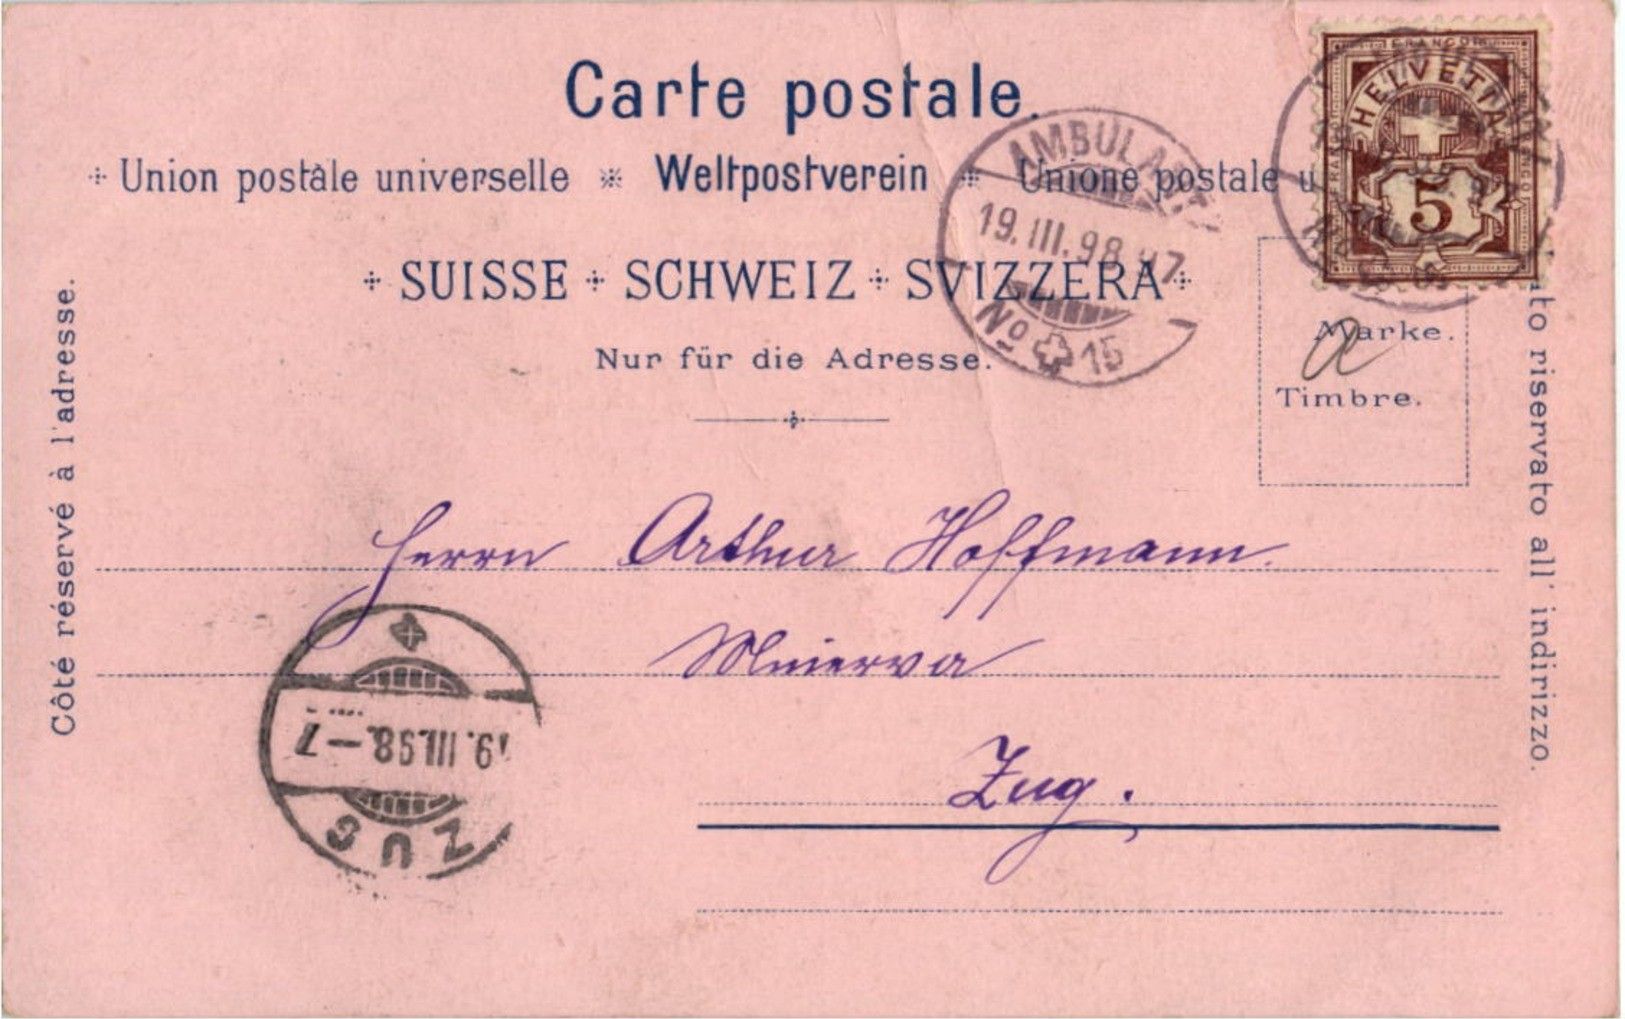 Carte postale.
Union postale universelle ※ Weltpostverein ※ Unione postale u
SUISSE + SCHWEIZ + SVIZZERA
Nur für die Adresse.
Côté réservé à l'adresse.
riservato all' indirizzo.
FRANCO
HELVETIA
5
Marke.
a
Timbre.
AMBULANT
19.III.98
No 15
Herrn Arthur Hoffmann.
Minerva
Zug.
19.III.98.–7
ZUG